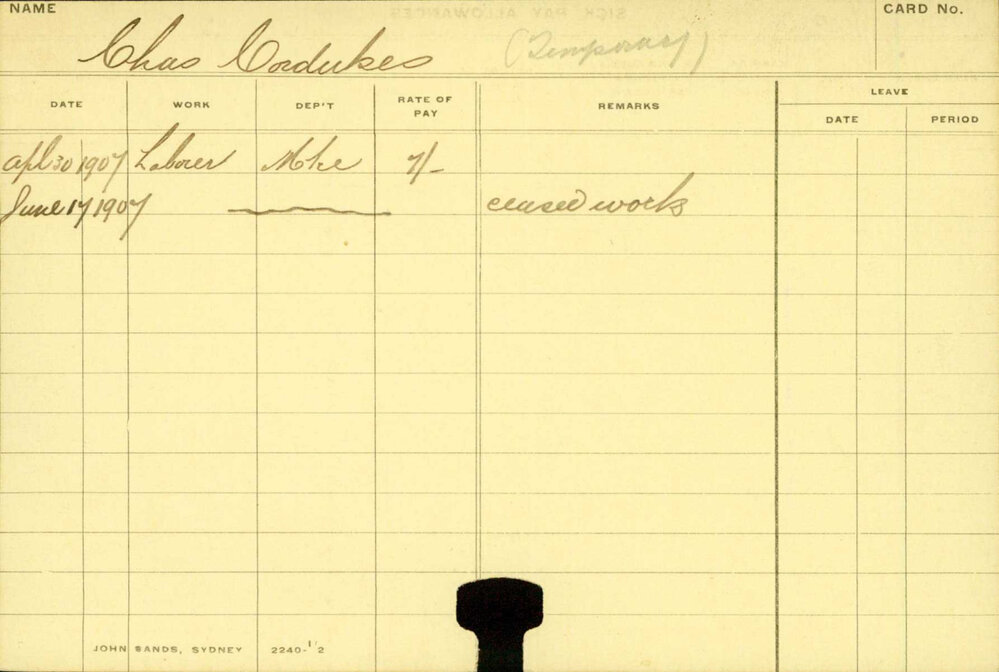 NAME
CARD No.
Chas Cordukes
(Temporary)
DATE WORK DEP'T RATE OF PAY REMARKS LEAVE
DATE PERIOD
Apl 30 1907 Laborer Mtce 7/-
June 17 1907 ceased work
JOHN SANDS, SYDNEY 2240-1'2